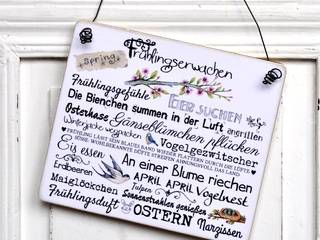 Frühlingserwachen
Spring
Frühlingsgefühle
EIER SUCHEN
Die Bienchen summen in der Luft angrillen
Osterhase Gänseblümchen pflücken
Winterjacke wegpacken Vogelgezwitscher
FRÜHLING LÄSST SEIN BLAUES BAND WIEDER FLATTERN DURCH DIE LÜFTE
SÜSSE, WOHLBEKANNTE DÜFTE STREIFEN AHNUNGSVOLL DAS LAND
Eis essen An einer Blume riechen
Erdbeeren APRIL APRIL Vogelnest
Maiglöckchen Tulpen Sonnenstrahlen genießen
Frühlingsduft OSTERN Narzissen